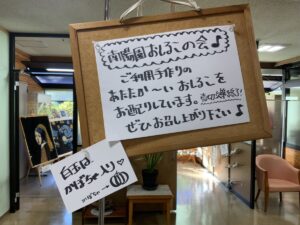 南陽園おしるこの会♪
ご利用手作りの
あたたか～いおしるこを
お配りしています。
ぜひお召し上がり下さい♪
白玉は
かぼちゃ入り♡
かぼちゃ→